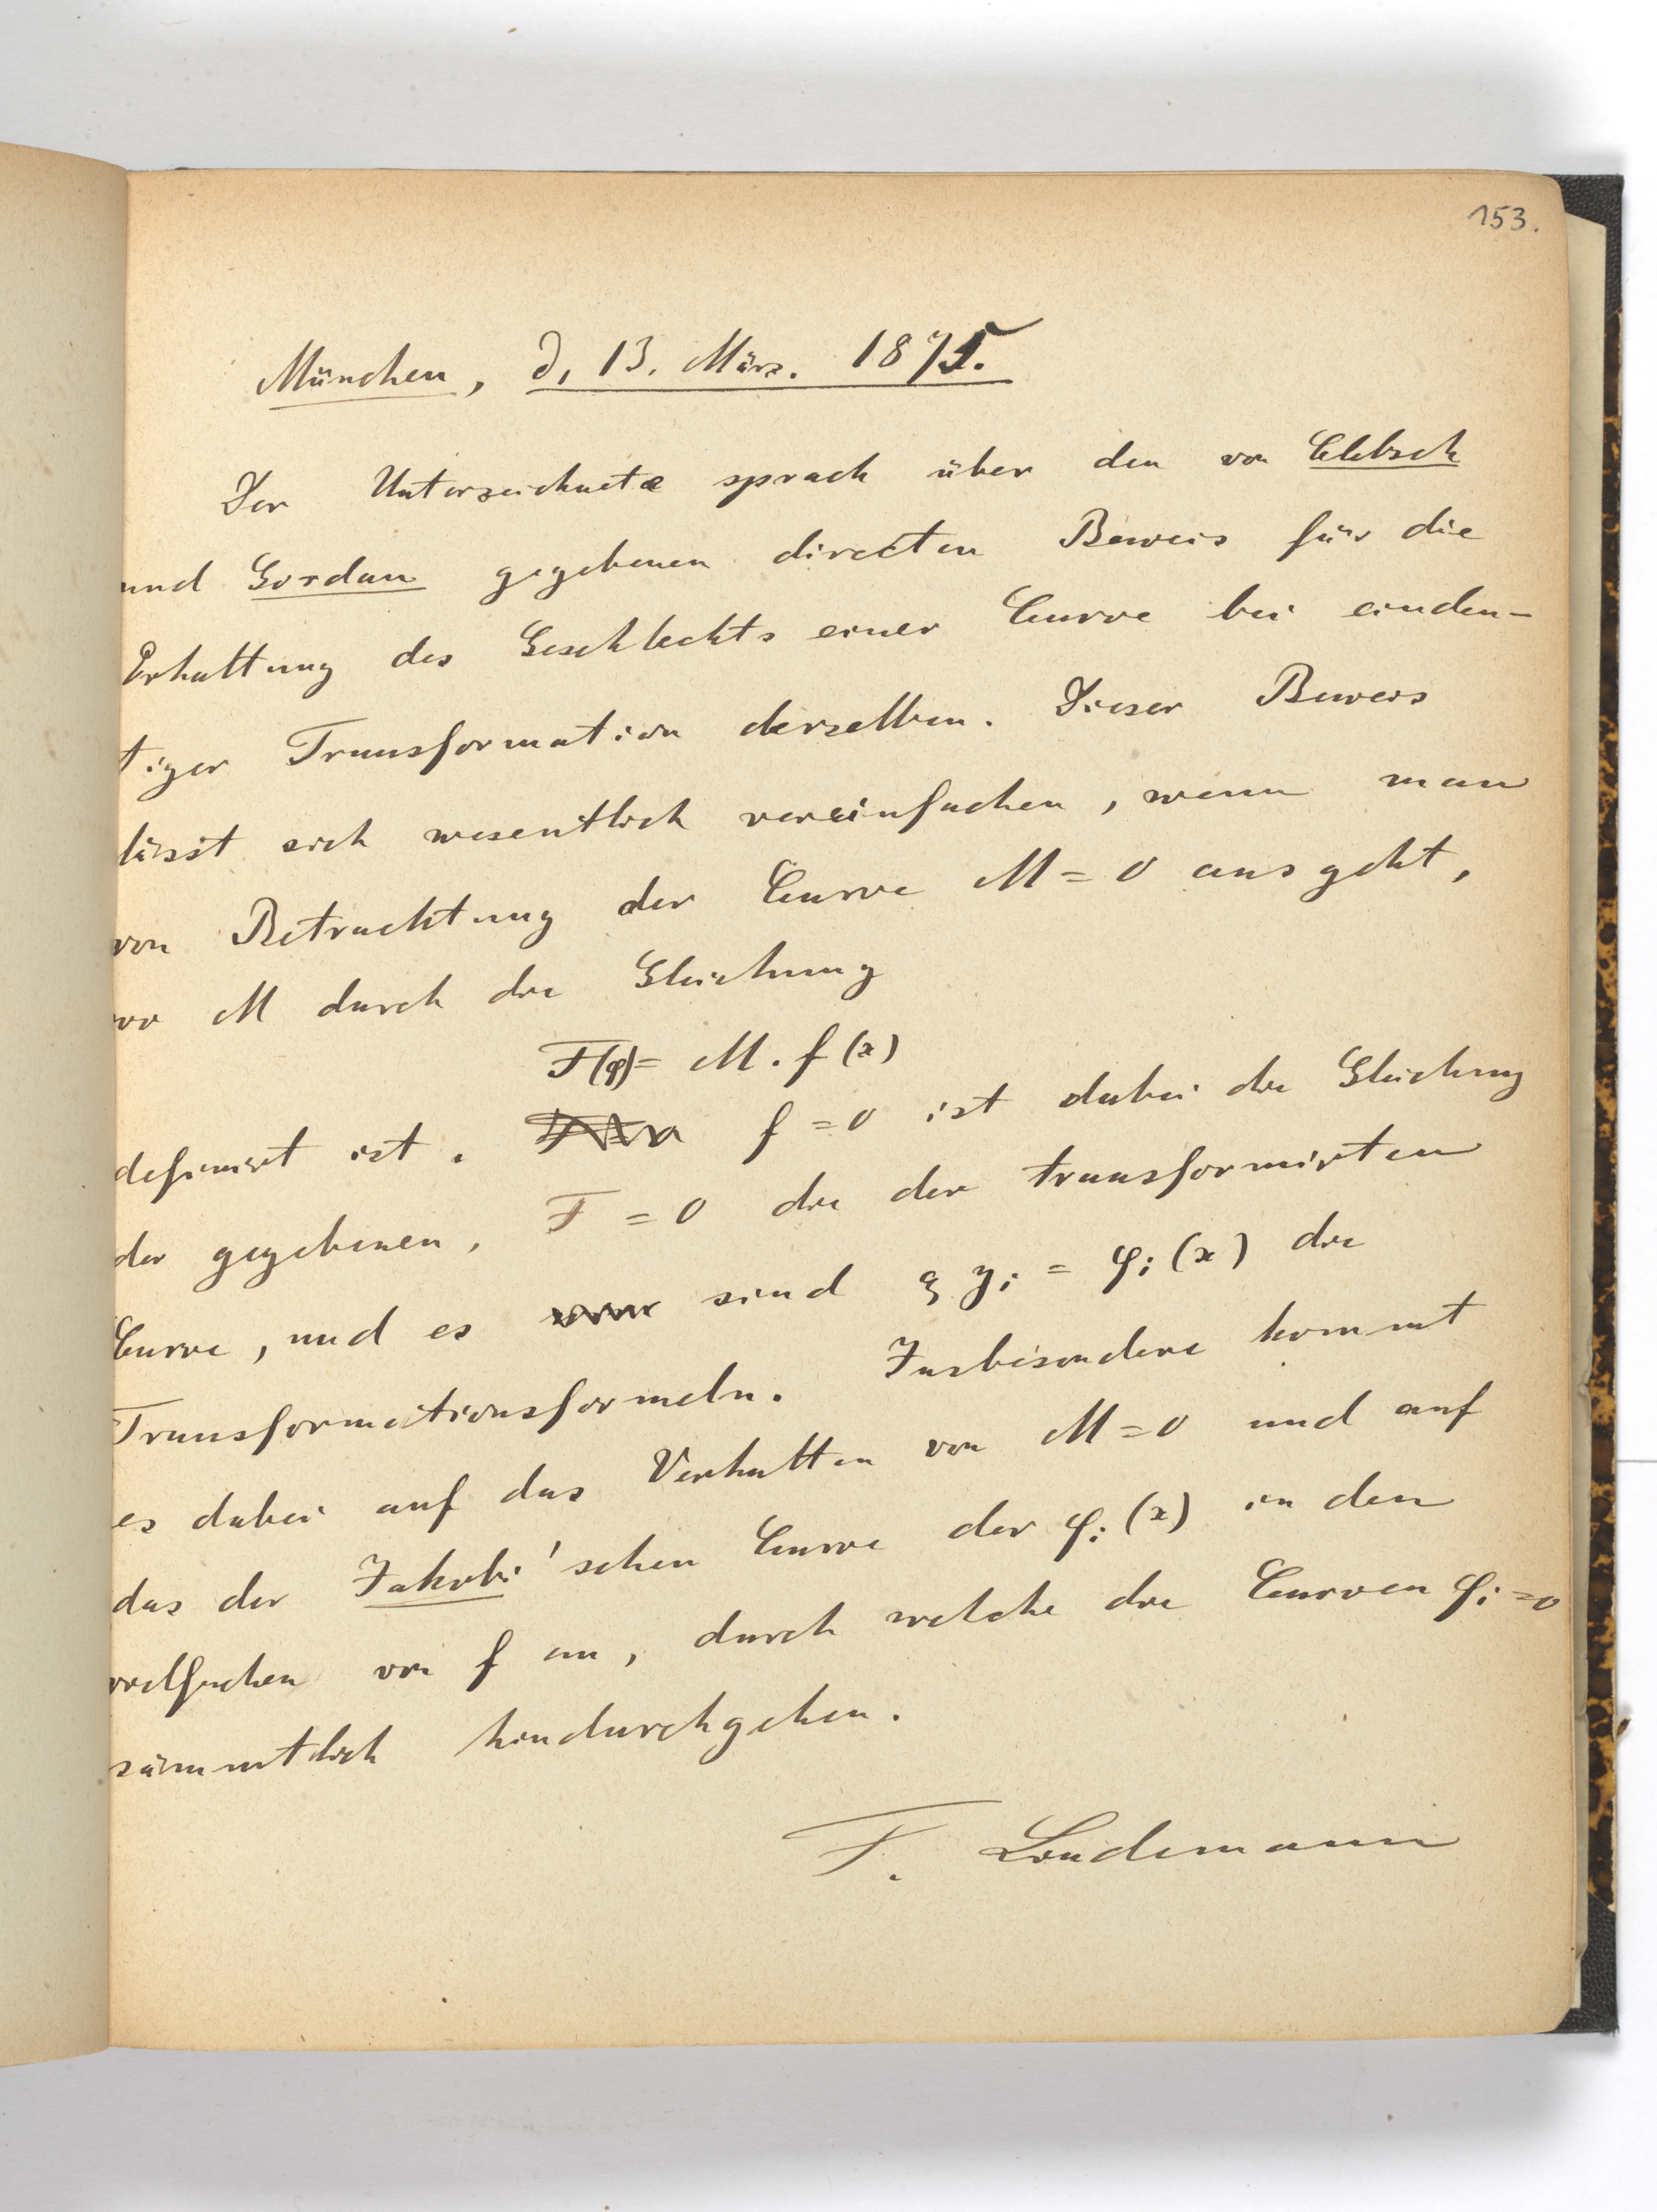 153.
München, d. 13. März. 1875.
Der Unterzeichnete sprach über den von Clebsch
und Gordan gegebenen directen Beweis für die
Erhaltung des Geschlechts einer Curve bei eindeu-
tiger Transformation derselben. Dieser Beweis
lässt sich wesentlich vereinfachen, wenn man
von Betrachtung der Curve M = 0 ausgeht,
wo M durch die Gleichung
F(φ) = M. f(x)
definirt ist. f = 0 ist dabei die Gleichung
der gegebenen, F = 0 die der transformirten
Curve, und es sind ϱ yi = φi (x) die
Transformationsformeln. Insbesondere kommt
es dabei auf das Verhalten von M = 0 und auf
das der Jakobi'schen Curve der φi (x) in den
vielfachen von f an, durch welche die Curven φi = 0
sämmtlich hindurchgehen.
F. Lindemann